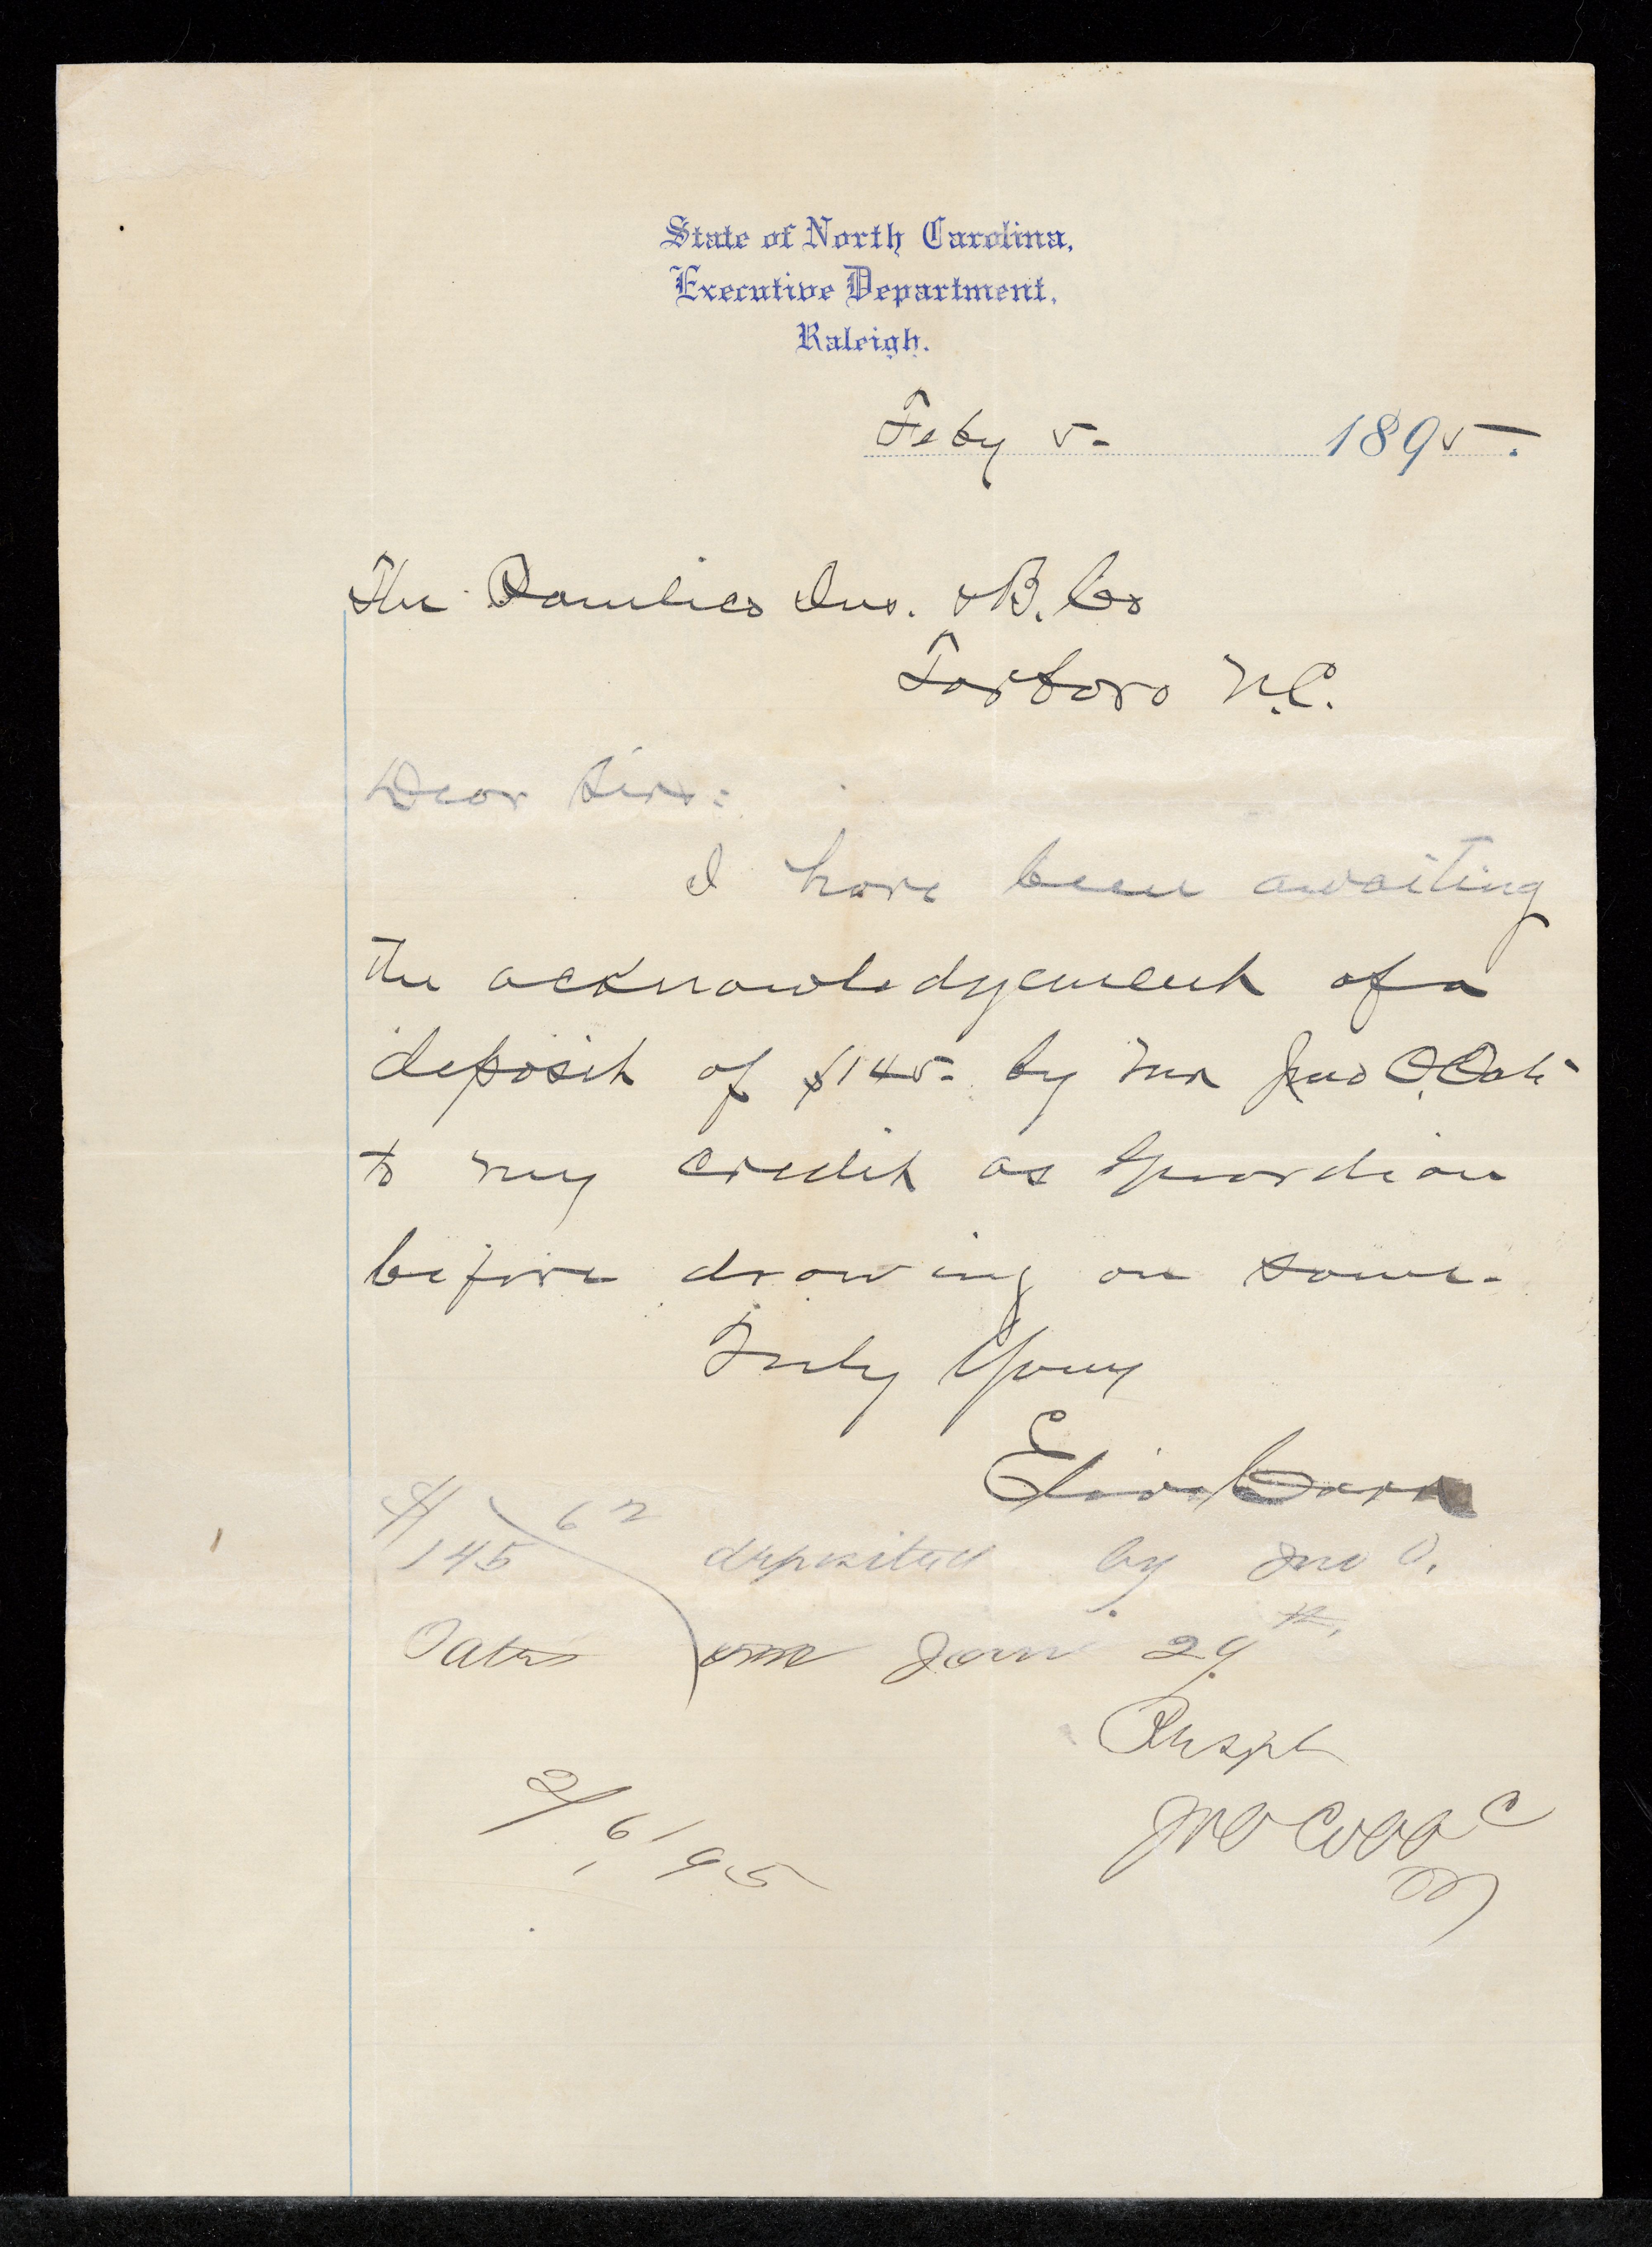 State of North Carolina,
Executive Department,
Raleigh.
Feby 5- 1895.
The Pamlico Ins. & B. Co
Tarboro N.C.
Dear Sirs:
I have been awaiting
the acknowledgement of a
deposit of $145- by Mr Jno O. Oats
to my credit as Guardian
before drawing on same.
Truly Yours
Elias Carr
$145 62 deposited by Jno O.
Oates on Jany 29th,
Respt
Jno
2/6/95